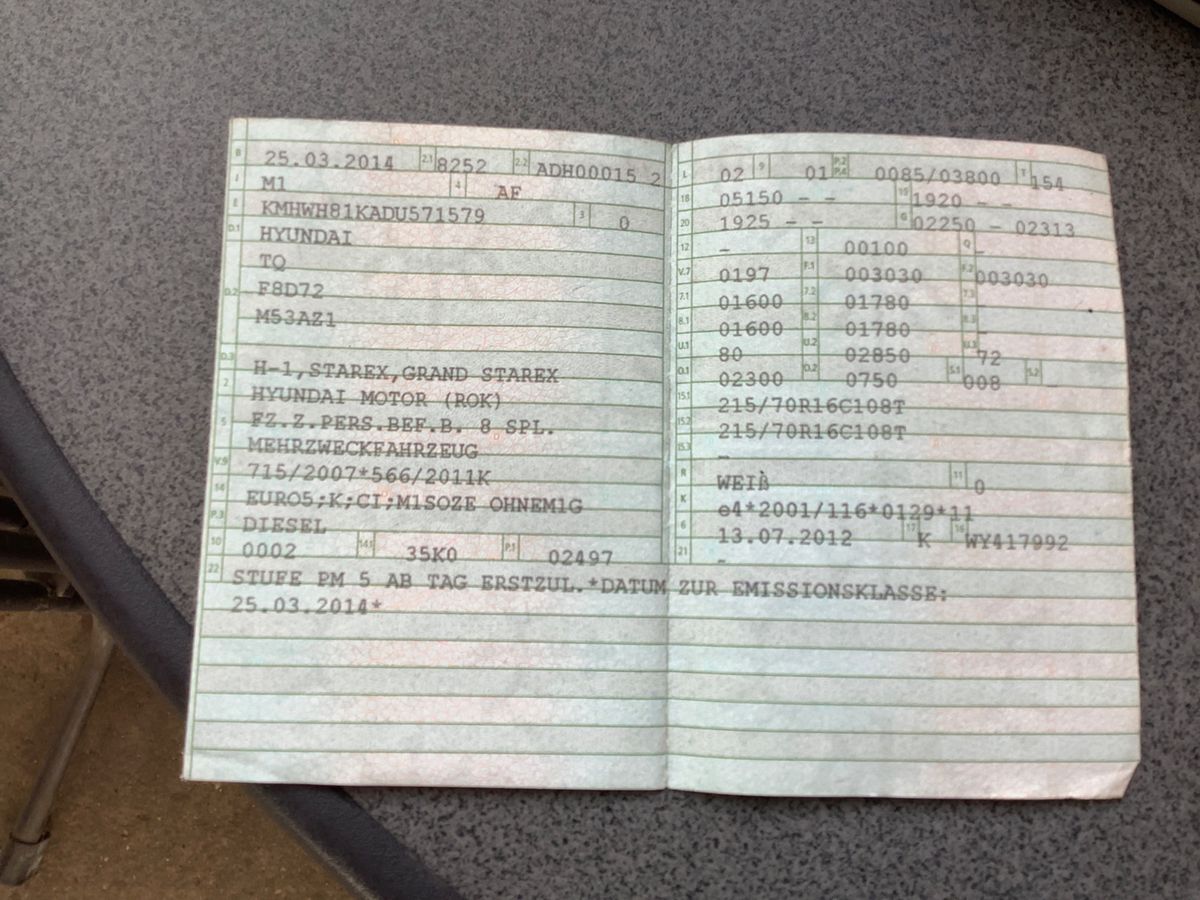 B 25.03.2014 2.1 8252 2.2 ADH00015 2
J M1 4 AF
E KMHWH81KADU571579 3 0
D.1 HYUNDAI
TQ
D.2 F8D72
M53AZ1
D.3 H-1,STAREX,GRAND STAREX
2 HYUNDAI MOTOR (ROK)
5 FZ.Z.PERS.BEF.B. 8 SPL.
MEHRZWECKFAHRZEUG
V.9 715/2007*566/2011K
14 EURO5;K;CI;M1SOZE OHNEM1G
P.3 DIESEL
10 0002 14.1 35K0 P.1 02497
22 STUFE PM 5 AB TAG ERSTZUL.*DATUM ZUR EMISSIONSKLASSE:
25.03.2014*
L 02 9 01 P.2 P.4 0085/03800 T 154
18 05150 - - 19 1920 - -
20 1925 - - G 02250 - 02313
12 - 13 00100 Q -
V.7 0197 F.1 003030 F.2 003030
7.1 01600 7.2 01780 7.3 -
8.1 01600 8.2 01780 8.3 -
U.1 80 U.2 02850 U.3 72
O.1 02300 O.2 0750 S.1 008 S.2 -
15.1 215/70R16C108T
15.2 215/70R16C108T
15.3 -
R WEIß 11 0
K e4*2001/116*0129*11
6 13.07.2012 17 K 16 WY417992
21 -